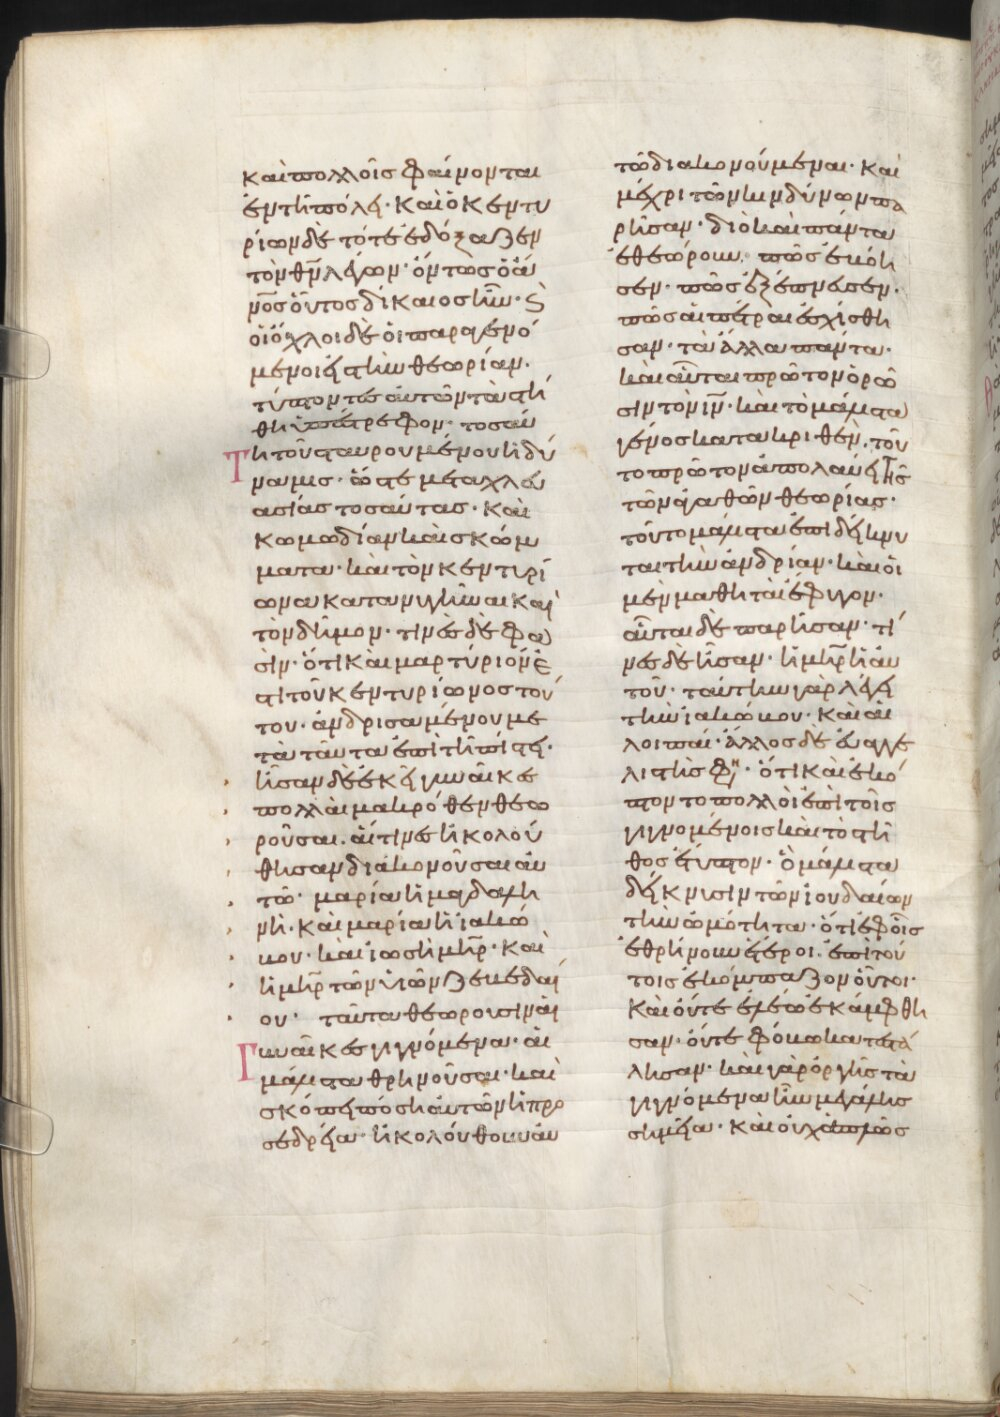 καὶ πολλοῖς φαίνονται
ἐν τῆ πόλει· καὶ ὁ κεντυ
ρίων δὲ τότε ἐδόξαζεν
τὸν θν̅ λέγων· ὄντως ὁ ἄν
νο̅ς οὗτος δίκαιος ἦν· ϛ
οἱ ὄχλοι δὲ οἱ παραγενό
μενοι εἰς τὴν θεωρίαν·
τύπτοντες ἑαυτῶν τὰ στή
θη ὑπέστρεφον· τοσαύ
τη τοῦ σταυρουμένου ἡ δύ
ναμις· ὥστε μετὰ χλευ
ασίας τοσαύτας· καὶ
κωμωδίαν καὶ σκώμ
ματα· καὶ τὸν κεντυρί
ωνα κατανυγῆναι καὶ
τὸν δῆμον· τινὲς δὲ φα
σὶν· ὅτι καὶ μαρτύριόν ἐ
στι τοῦ κεντυρίωνος τού
του· ἀνδρισαμένου με
τὰ ταῦτα ἐπὶ τῆ πίστει·
ἦσαν δὲ ἐκεῖ γυναῖκε
πολλαὶ μακρόθεν θεω
ροῦσαι· αἵτινες ἠκολού
θησαν διακονοῦσαι αὐ
τῶ· μαρία ἡ μαγδαλη
νὴ· καὶ μαρία ἡ ἰακώ
βου· καὶ ἰωσῆ μη̅ρ· καὶ
ἡ μη̅ρ τῶν υἱῶν ζεβεδαί
ου· ταῦτα θεωροῦσιν αἱ
γυναῖκες γιγνόμενα· αἱ
μάλιστα θρηνοῦσαι· καὶ
σκόπει πόση αὐτῶν ἡ προ
σεδρεία· ἠκολούθουν αὐ
τῶ διακονούμεναι· καὶ
μέχρι τῶν κινδύνων πα
ρῆσαν· διὸ καὶ πάντα
ἐθεώρουν· πῶς ἐβόη
σεν· πῶς ἐξέπνευσεν·
πῶς αἱ πέτραι ἐσχίσθη
σαν· τὰ ἄλλα πάντα·
καὶ αὗται πρῶτον ὁρῶ
σιν τὸν ιν̅· καὶ τὸ μάλιστα
γένος κατακριθὲν· τοῦ
το πρῶτον ἀπολαύει τῆς
τῶν ἀγαθῶν θεωρίας·
τοῦτο μάλιστα ἐπιδείκνυ
ται τὴν ἀνδρίαν· καὶ οἱ
μὲν μαθηταὶ ἔφυγον·
αὗται δὲ παρῆσαν· τί
νες δὲ ἦσαν· ἡ μη̅ρ αὐ
τοῦ· ταύτην γὰρ λέγει
τὴν ἰακώβου· καὶ αἱ
λοιπαί· ἄλλος δὲ εὐαγγε
λιστής φη· ὅτι καὶ ἐκό
πτοντο πολλοὶ ἐπὶ τοῖς
γιγνομένοις καὶ τὸ στῆ
θος ἔτυπτον· ὃ μάλιστα
δείκνυσιν τῶν ἰουδαίων
τὴν ὠμότητα· ὅτι ἐφ οἷς
ἐθρήνουν ἕτεροι· ἐπὶ τού
τοις ἐκόμπαζον οὗτοι·
καὶ οὔτε ἐλέω ἐκάμφθη
σαν· οὔτε φόβω κατεστά
λησαν· καὶ γὰρ ὀργῆς τὰ
γιγνόμενα ἦν μεγάλης
σημεῖα· καὶ οὐχ ἁπλῶς